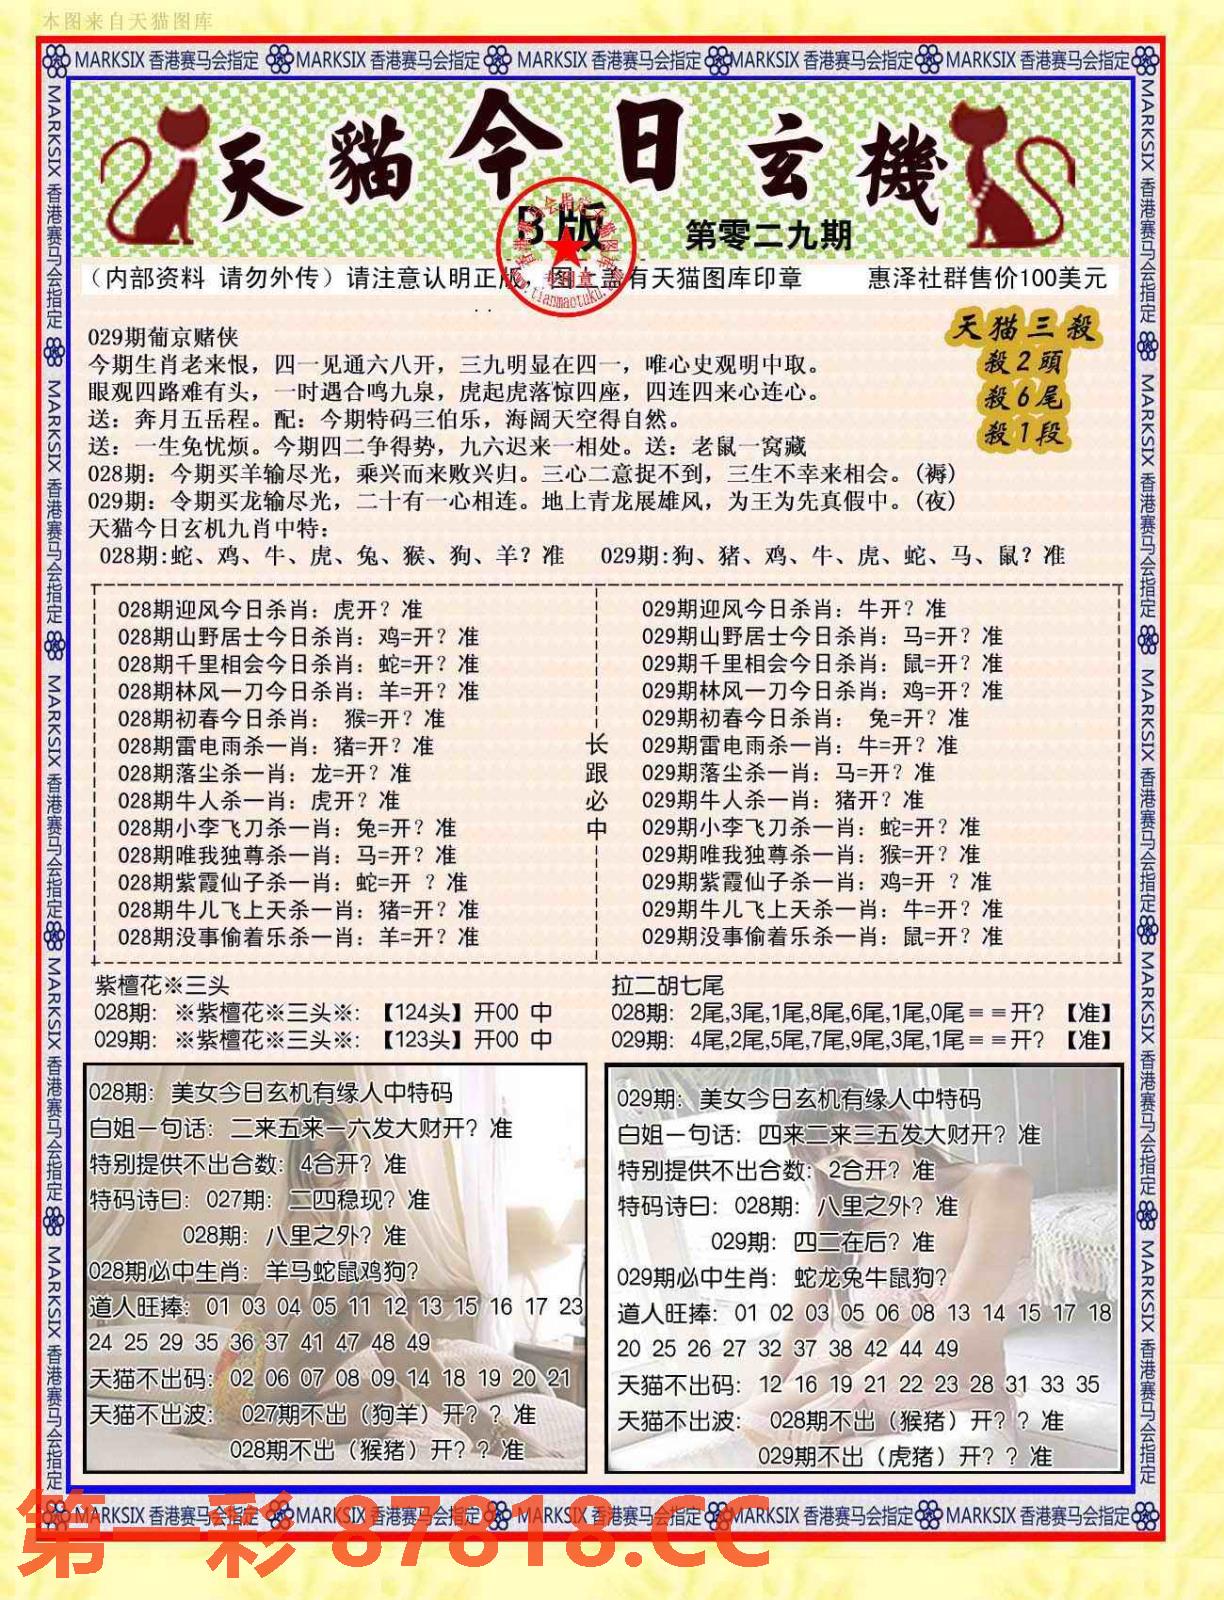 本图来自天猫图库
MARKSIX 香港赛马会指定 MARKSIX 香港赛马会指定 MARKSIX 香港赛马会指定 MARKSIX 香港赛马会指定 MARKSIX 香港赛马会指定
天貓今日玄機
B版
第零二九期
（内部资料 请勿外传）请注意认明正版，图上盖有天猫图库印章 惠泽社群售价100美元
029期葡京赌侠
今期生肖老来恨，四一见通六八开，三九明显在四一，唯心史观明中取。
眼观四路难有头，一时遇合鸣九泉，虎起虎落惊四座，四连四来心连心。
送：奔月五岳程。配：今期特码三伯乐，海阔天空得自然。
送：一生免忧烦。今期四二争得势，九六迟来一相处。送：老鼠一窝藏
028期：今期买羊输尽光，乘兴而来败兴归。三心二意捉不到，三生不幸来相会。(褥)
029期：令期买龙输尽光，二十有一心相连。地上青龙展雄风，为王为先真假中。(夜)
天猫三殺
殺2頭
殺6尾
殺1段
天猫今日玄机九肖中特：
028期:蛇、鸡、牛、虎、兔、猴、狗、羊？准 029期:狗、猪、鸡、牛、虎、蛇、马、鼠？准
028期迎风今日杀肖：虎开？准
028期山野居士今日杀肖：鸡=开？准
028期千里相会今日杀肖：蛇=开？准
028期林风一刀今日杀肖：羊=开？准
028期初春今日杀肖： 猴=开？准
028期雷电雨杀一肖：猪=开？准
028期落尘杀一肖：龙=开？准
028期牛人杀一肖：虎开？准
028期小李飞刀杀一肖：兔=开？准
028期唯我独尊杀一肖：马=开？准
028期紫霞仙子杀一肖：蛇=开 ？准
028期牛儿飞上天杀一肖：猪=开？准
028期没事偷着乐杀一肖：羊=开？准
长跟必中
029期迎风今日杀肖：牛开？准
029期山野居士今日杀肖：马=开？准
029期千里相会今日杀肖：鼠=开？准
029期林风一刀今日杀肖：鸡=开？准
029期初春今日杀肖： 兔=开？准
029期雷电雨杀一肖：牛=开？准
029期落尘杀一肖：马=开？准
029期牛人杀一肖：猪开？准
029期小李飞刀杀一肖：蛇=开？准
029期唯我独尊杀一肖：猴=开？准
029期紫霞仙子杀一肖：鸡=开 ？准
029期牛儿飞上天杀一肖：牛=开？准
029期没事偷着乐杀一肖：鼠=开？准
紫檀花※三头
028期：※紫檀花※三头※：【124头】开00 中
029期：※紫檀花※三头※：【123头】开00 中
拉二胡七尾
028期：2尾,3尾,1尾,8尾,6尾,1尾,0尾＝＝开？【准】
029期：4尾,2尾,5尾,7尾,9尾,3尾,1尾＝＝开？【准】
028期：美女今日玄机有缘人中特码
白姐一句话：二来五来一六发大财开？准
特别提供不出合数：4合开？准
特码诗曰：027期：二四稳现？准
028期：八里之外？准
028期必中生肖：羊马蛇鼠鸡狗?
道人旺捧：01 03 04 05 11 12 13 15 16 17 23
24 25 29 35 36 37 41 47 48 49
天猫不出码：02 06 07 08 09 14 18 19 20 21
天猫不出波： 027期不出（狗羊）开？？准
028期不出（猴猪）开？？准
029期：美女今日玄机有缘人中特码
白姐一句话：四来二来三五发大财开？准
特别提供不出合数：2合开？准
特码诗曰：028期：八里之外？准
029期：四二在后？准
029期必中生肖：蛇龙兔牛鼠狗?
道人旺捧：01 02 03 05 06 08 13 14 15 17 18
20 25 26 27 32 37 38 42 44 49
天猫不出码：12 16 19 21 22 23 28 31 33 35
天猫不出波： 028期不出（猴猪）开？？准
029期不出（虎猪）开？？准
MARKSIX 香港赛马会指定 MARKSIX 香港赛马会指定 MARKSIX 香港赛马会指定 MARKSIX 香港赛马会指定
MARKSIX 香港赛马会指定 MARKSIX 香港赛马会指定 MARKSIX 香港赛马会指定 MARKSIX 香港赛马会指定 MARKSIX 香港赛马会指定
MARKSIX 香港赛马会指定 MARKSIX 香港赛马会指定 MARKSIX 香港赛马会指定 MARKSIX 香港赛马会指定 MARKSIX 香港赛马会指定
第一彩 87818.CC